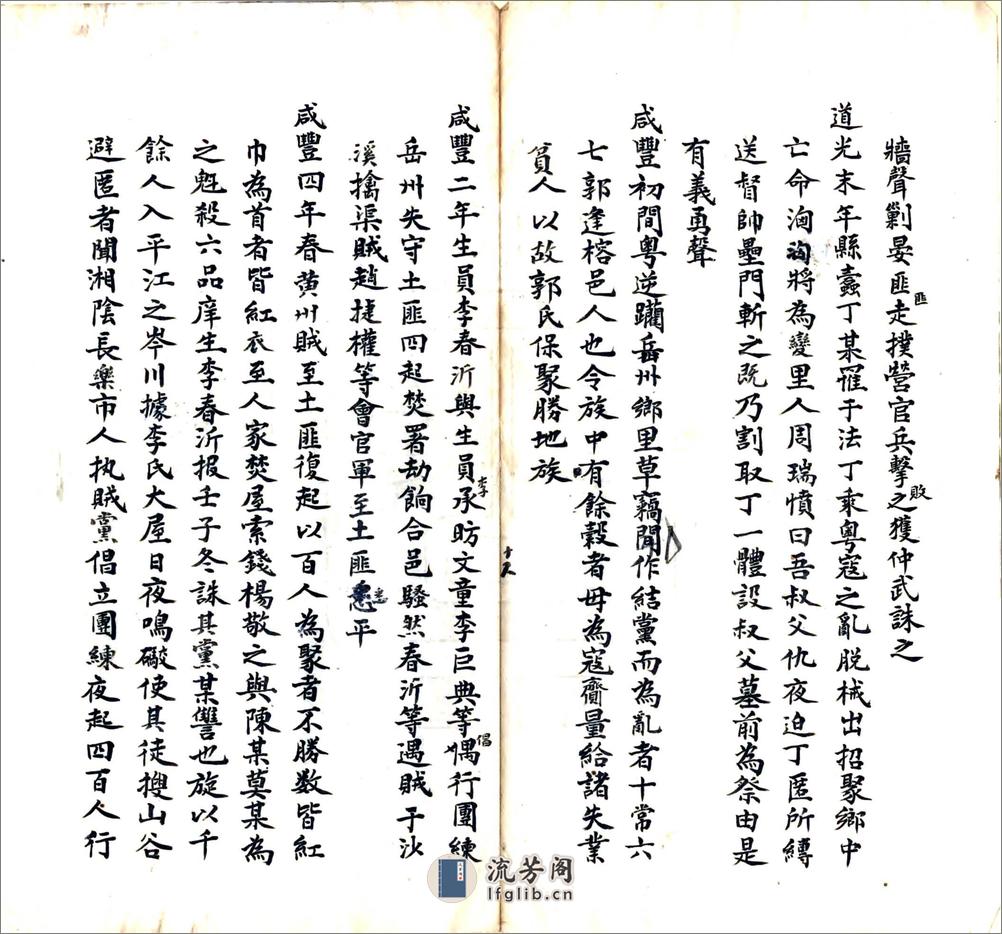 牆聲剿晏匪走撲營官兵擊之獲仲武誅之
匪
敗
道光末年縣蠹丁某罹于法丁乘粤寇之亂脱械出招聚鄉中
亡命洶洶將為變里人周瑞憤曰吾叔父仇夜迫丁匿所縛
送督帥壘門斬之既乃割取丁一體設叔父墓前為祭由是
有義勇聲
咸豐初間粤逆躪岳州鄉里草竊間作結黨而為亂者十常六
七郭逢榕邑人也令族中有餘穀者毋為寇齎量給諸失業
貟人以故郭氏保聚勝地族
十六
咸豐二年生員李春沂與生員承昉文童李巨典等愓行團練
李
倡
岳州失守土匪四起焚署劫餉合邑騷然春沂等遇賊于沙
溪擒渠賊趙捷權等會官軍至土匪平
咸豐四年春黄州賊至土匪復起以百人為聚者不勝数皆紅
巾為首者皆紅衣至人家焚屋索錢楊敬之與陳某莫某為
之魁殺六品庠生李春沂报壬子冬誅其黨某讐也旋以千
餘人入平江之岑川據李氏大屋日夜鳴礮使其徒搜山谷
避匿者聞湘陰長樂市人执賊黨倡立團練夜起四百人行
流芳阁
lfglib.cn